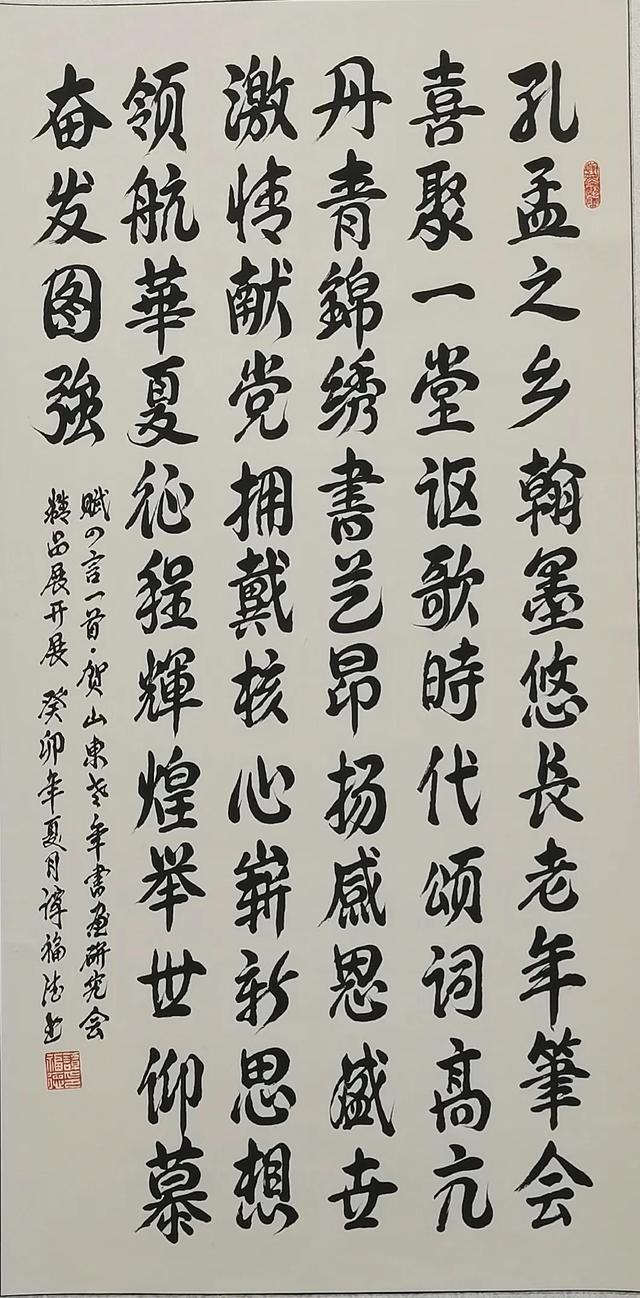 孔孟之乡翰墨悠長老年筆会
喜聚一堂讴歌時代颂词高亢
丹青錦绣書艺昂扬感恩盛世
激情献党拥戴核心崭新思想
领航華夏征程輝煌举世仰慕
奋发图強
赋四言一首·贺山東老年書画研究会
精品展开展 癸卯年夏月谭福德书